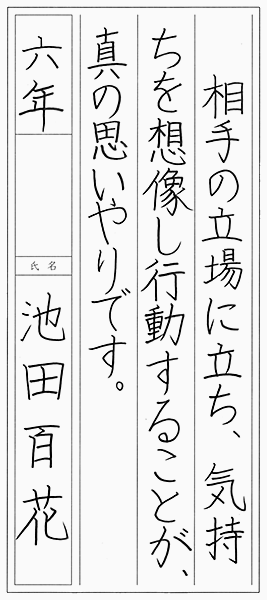 相手の立場に立ち、気持
ちを想像し行動することが、
真の思いやりです。
六年
氏名
池田百花